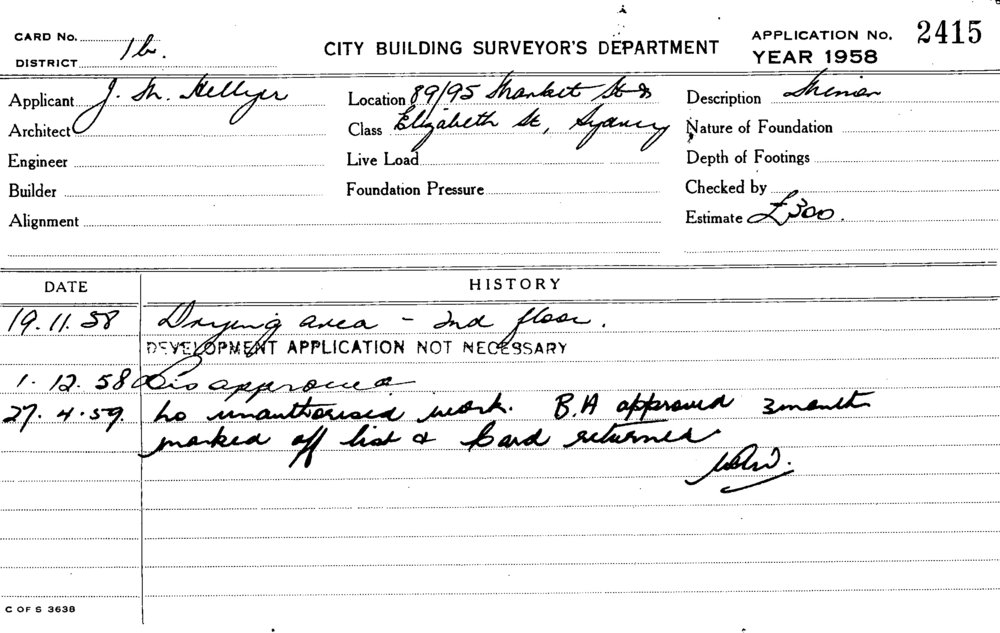 CARD No.
DISTRICT 1b.
CITY BUILDING SURVEYOR'S DEPARTMENT
APPLICATION No. 2415
YEAR 1958
Applicant J. M. Hellyer
Architect
Engineer
Builder
Alignment
Location 89/95 Market St &
Class Elizabeth St, Sydney
Live Load
Foundation Pressure
Description Minor
Nature of Foundation
Depth of Footings
Checked by
Estimate £300.
DATE HISTORY
19.11.58 Drying area - 2nd floor.
DEVELOPMENT APPLICATION NOT NECESSARY
1.12.58 Disapproved
27.4.59 no unauthorised work. B.A approved 3 months
marked off list & Card returned
C OF S 3638